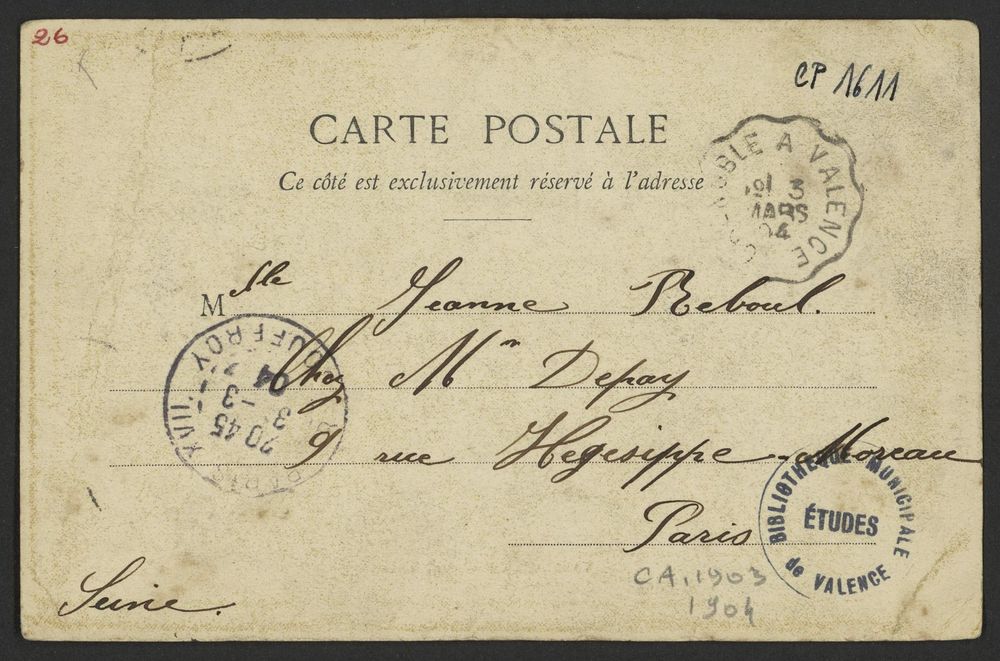 26
CP 1611
CARTE POSTALE
Ce côté est exclusivement réservé à l'adresse
A VALENCE
3
MARS
04
Mlle Jeanne Reboul.
Chez Mr Depay
9 rue Hegesippe-Moreau
Paris
Seine.
XVIII
20 45
3 - 3
04
BIBLIOTHEQUE MUNICIPALE
ÉTUDES
de VALENCE
CA, 1903
1904